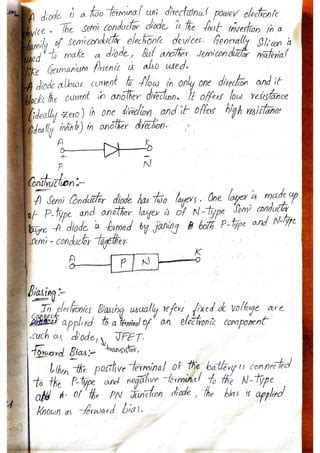 A diode is a two terminal uni directional power electronic
device. The semi conductor diode is the first invention in a
family of semiconductor electronic devices. Generally Silicon is
used to make a diode, But another semiconductor material
like Germanium Arsenic is also used.
A diode allows current to flow in only one direction and it
blocks the current in another direction. It offers low resistance
(ideally zero) in one direction and it offers high resistance
(ideally infinite) in another direction.
A K
P N
Construction:-
A Semi Conductor diode has two layers. One layer is made up
of P-type and another layer is of N-type Semi conductor
layer. A diode is formed by joining both P-type and N-type
semi-conductor together.
A P N K
Biasing:-
In electronics Biasing usually refers fixed dc voltage are
applied to a terminal of an electronic component
such as diode, transistor, JFET.
Forward Bias:-
When the positive terminal of the battery is connected
to the P-type and negative terminal to the N-type
of the PN Junction diode, the bias is applied
Known as forward bias.